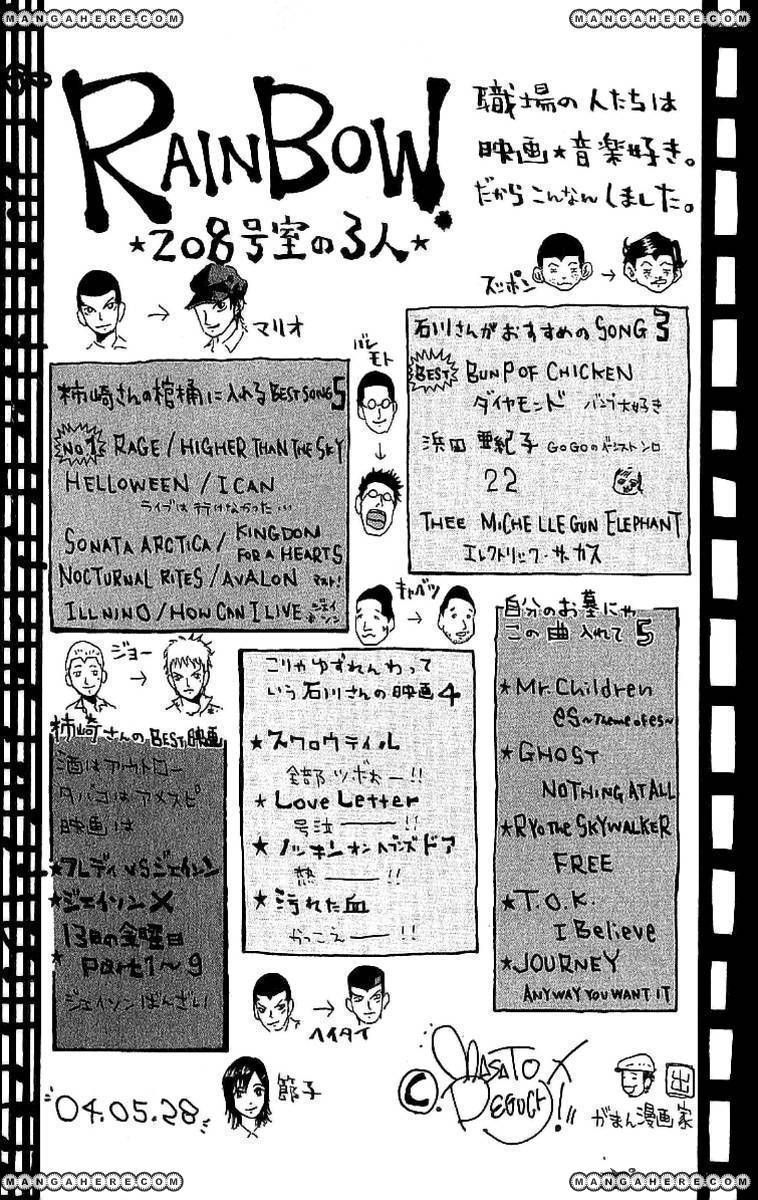 MANGAHERE.COM
MANGAHERE.COM
RAINBOW
★208号室の3人★
職場の人たちは
映画★音楽好き。
だからこんなんしました。
ズッポン
マリオ
バレモト
柿崎さんの棺桶に入れるBEST SONG 5
No.1 RAGE / HIGHER THAN THE SKY
HELLOWEEN / I CAN
ライブは行けなかった…
SONATA ARCTICA / KINGDOM FOR A HEARTS
NOCTURNAL RITES / AVALON マスト!
ILL NINO / HOW CAN I LIVE ジェイソン
石川さんがおすすめのSONG 3
BEST BUNP OF CHICKEN
ダイヤモンド バンプ大好き
浜田亜紀子 GOGOのベーシスト ソロ
22
THEE MICHELLE GUN ELEPHANT
エレクトリック・サーカス
キャベツ
ジョー
柿崎さんのBEST映画
酒はアウトロー
タバコはアメスピ
映画は
★フレディ VS ジェイソン
★ジェイソンX
★13日の金曜日
Part 1〜9
ジェイソンばんざい
こりゃゆずれんわって
いう石川さんの映画4
★スワロウテイル
全部ツボォー!!
★Love Letter
号泣――!!
★ノッキンオンヘブンズドア
熱――!!
★汚れた血
かっこえ――!!
自分のお墓にゃ
この曲入れて5
★Mr.Children
es 〜Theme of es〜
★GHOST
NOTHING AT ALL
★RYO THE SKYWALKER
FREE
★T.O.K.
I Believe
★JOURNEY
ANYWAY YOU WANT IT
ヘイタイ
節子
04.05.28
C. MASATO DEGUCHI!!
出
がまん漫画家
MANGAHERE.COM
MANGAHERE.COM